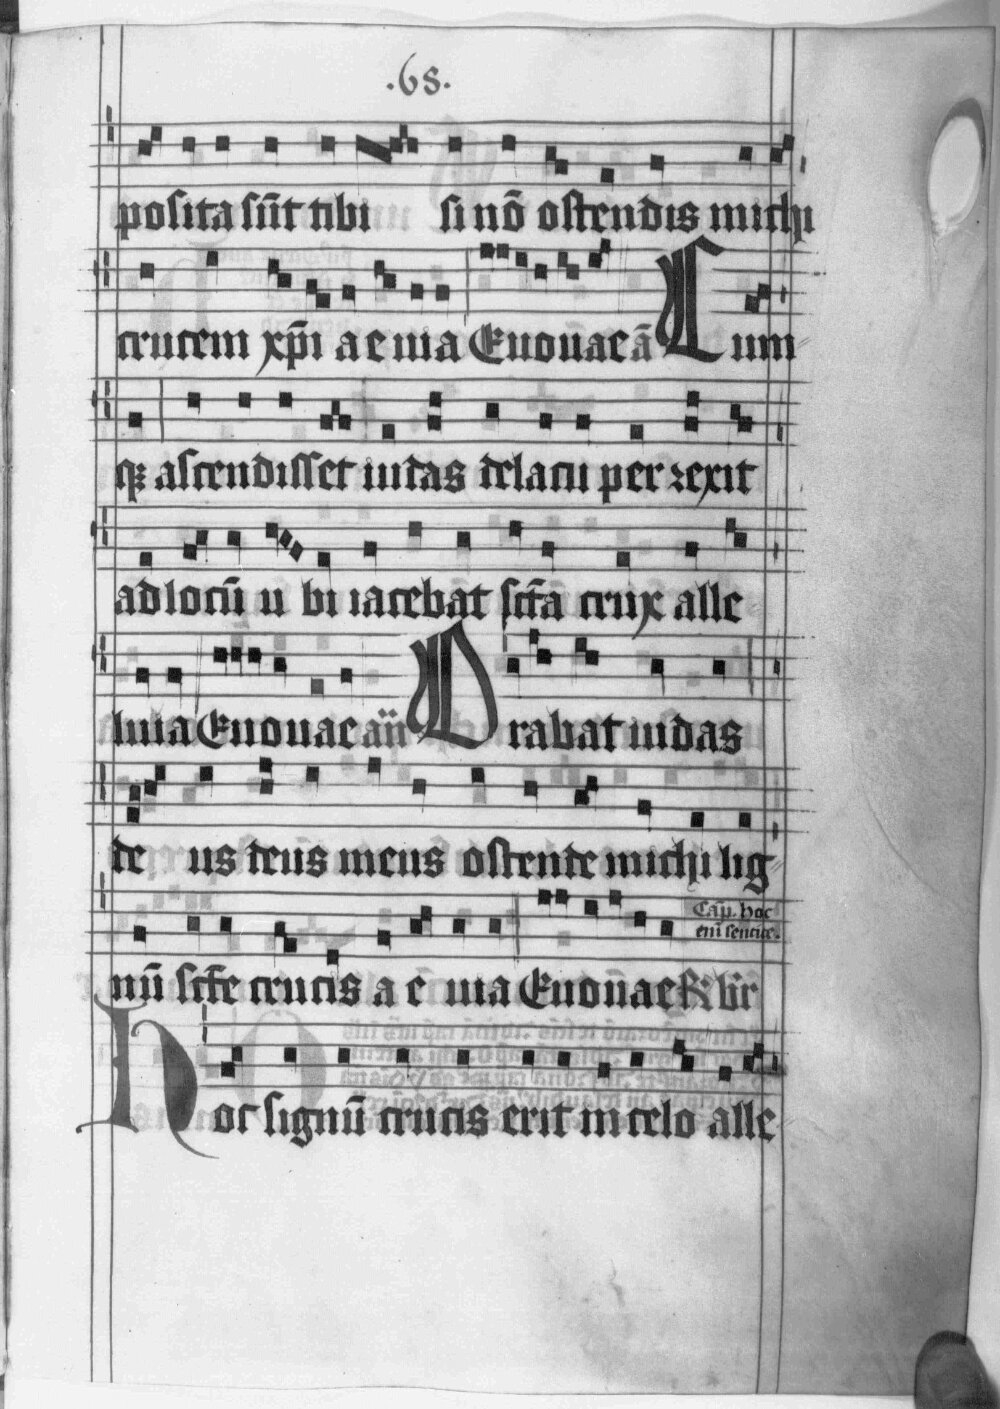 .68.
posita sūt tibi si nō ostendis michi
crucem xp̄i a e uia Euouae ā Cum
qȝ ascendisset iudas delacu perrexit
ad locū u bi iacebat sct̄a crux alle
luia Euouae an̄ Orabat iudas
de us deus meus ostende michi lig
nū sct̄e crucis a e uia Euouae
Cap̄. hoc
eni sentite.
Hoc signū crucis erit in celo alle